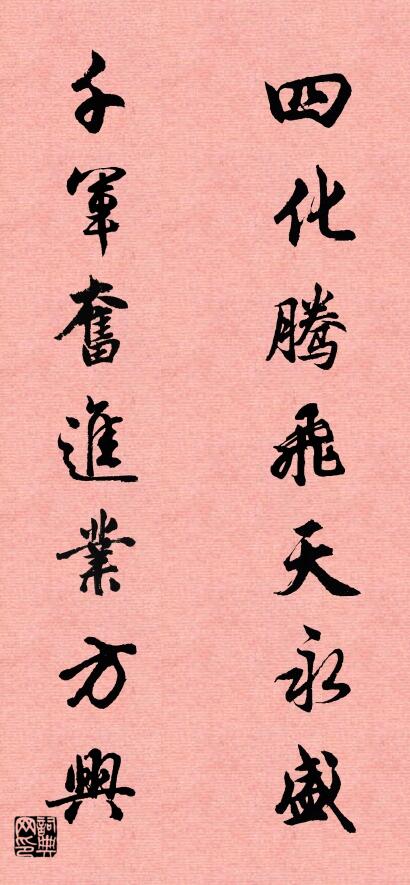 四化腾飛天永盛
千軍奮進業方興
詞典网印